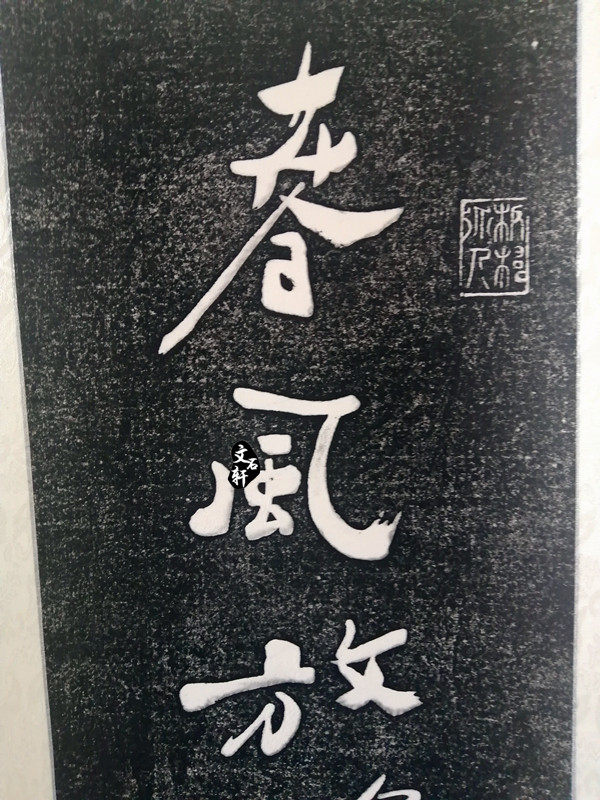 春風放
文石轩